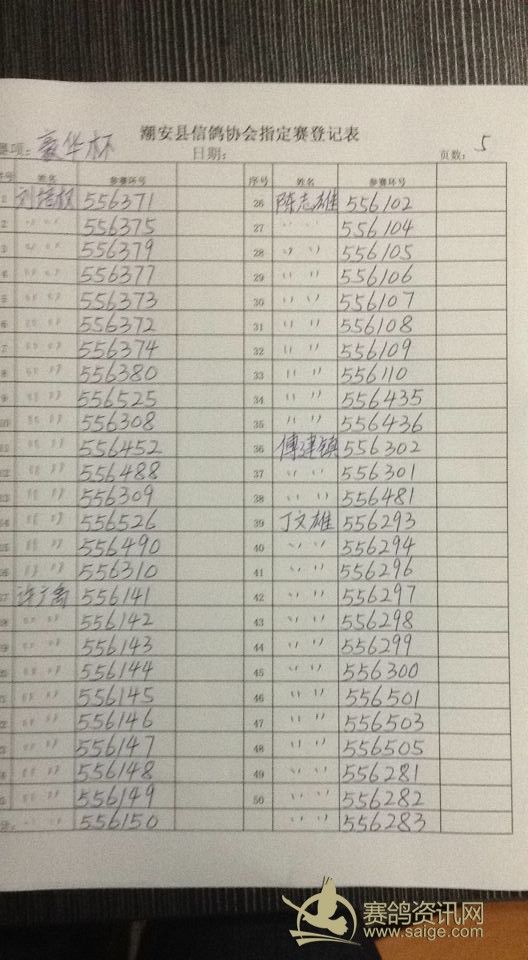 潮安县信鸽协会指定赛登记表
赛项: 豪华杯 日期: 页数: 5
序号 姓名 参赛环号 序号 姓名 参赛环号
1 刘培权 556371 26 陈志雄 556102
2 〃 〃 556375 27 〃 〃 556104
3 〃 〃 556379 28 〃 〃 556105
4 〃 〃 556377 29 〃 〃 556106
5 〃 〃 556373 30 〃 〃 556107
6 〃 〃 556372 31 〃 〃 556108
7 〃 〃 556374 32 〃 〃 556109
8 〃 〃 556380 33 〃 〃 556110
9 〃 〃 556525 34 〃 〃 556435
10 〃 〃 556308 35 〃 〃 556436
11 〃 〃 556452 36 傅建镇 556302
12 〃 〃 556488 37 〃 〃 556301
13 〃 〃 556309 38 〃 〃 556481
14 〃 〃 556526 39 丁文雄 556293
15 〃 〃 556490 40 〃 〃 556294
16 〃 〃 556310 41 〃 〃 556296
17 556141 42 〃 〃 556297
18 〃 〃 556142 43 〃 〃 556298
19 〃 〃 556143 44 〃 〃 556299
20 〃 〃 556144 45 〃 〃 556300
21 〃 〃 556145 46 〃 〃 556501
22 〃 〃 556146 47 〃 〃 556503
23 〃 〃 556147 48 〃 〃 556505
24 〃 〃 556148 49 〃 〃 556281
25 〃 〃 556149 50 〃 〃 556282
〃 〃 556150 〃 〃 556283
赛鸽资讯网
www.saige.com